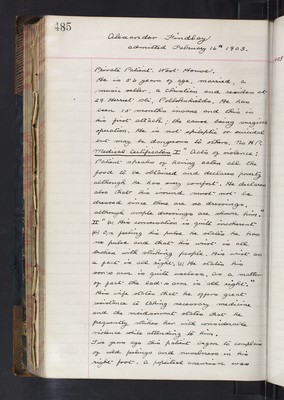 485
Alexander Findlay
admitted February 16th 1903.
Private Patient. West House.
He is 56 years of age, married, a
music seller, a Christian and resides at
29 Herriet St., Pollokshields. He has
been 15 months insane and this is
his first attack, the cause being
operation. He is not epileptic or suicidal
but may be dangerous to others.
Medical Certificates I" Acts of violence:
Patient speaks of having eaten all the
food to be obtained and declares poverty
although he has every comfort. He declares
also that his wound must not be
dressed since there are no dressings,
although ample dressings are shown him.
II" His conversation is quite incoherent
feeling his pulse he states he has
no pulse and that his wrist is all
broken with striking people. His wrist as
a fact is all right. He states his
son's arm is quite useless, as a matter
of fact the lad's arm is all right."
His wife states that he offers great
resistance to taking necessary medicine
and the maidservant states that he
frequently strikes her with considerable
violence while attending to him.
Two years ago this patient began to complain
of odd feelings and numbness in his
right foot. a popliteal aneurism was